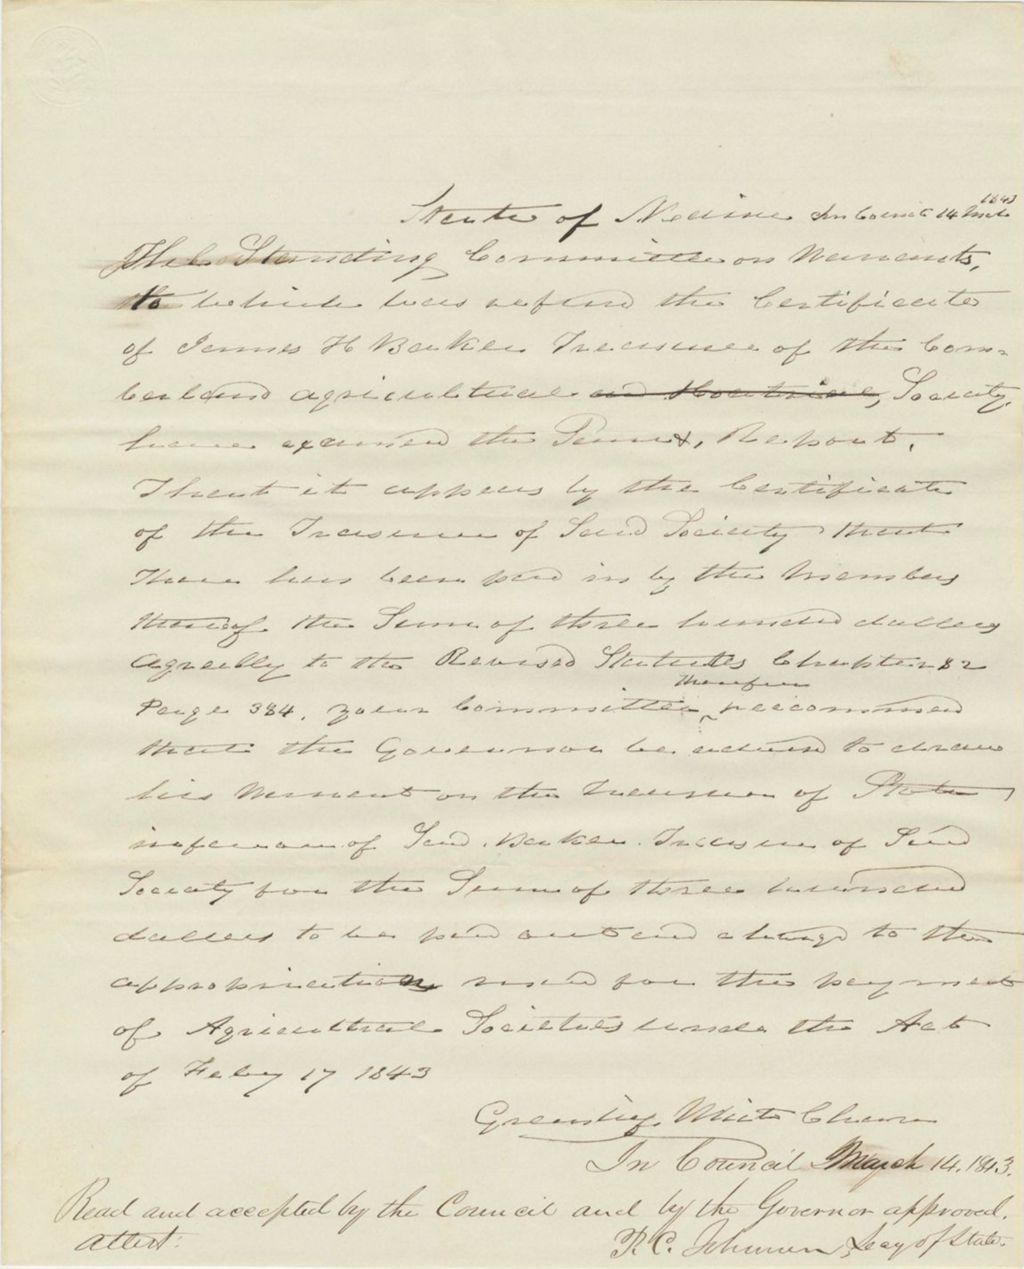 State of Maine In Council 14 March 1843
The Standing Committee on Warrants,
to which was referd the Certificate
of James H Baker Treasurer of the Com-
berland agricultural and Hortical, Society,
have examined the Same &, Report.
That it appears by the Certificate
of the Treasurer of Said Society that
there has been paid in by the members
thereof the Sum of three hundred dollars
Agreeably to the Revised Statutes Chapter 82
Page 384. your Committee therefore reccommend
that the Governor be advised to draw
his Warrant on the Treasurer of State
in favour of Said Baker Treasurer of Said
Society for the Sum of three hundred
dollars to be paid out and charge to the
appropriation made for the payment
of Agricultural Societies under the Act
of Feby 17 1843
Greenlief White Chairn
In Council March 14. 1843.
Read and accepted by the Council and by the Governor approved.
Attest: P. C. Johnson, Secy of State.